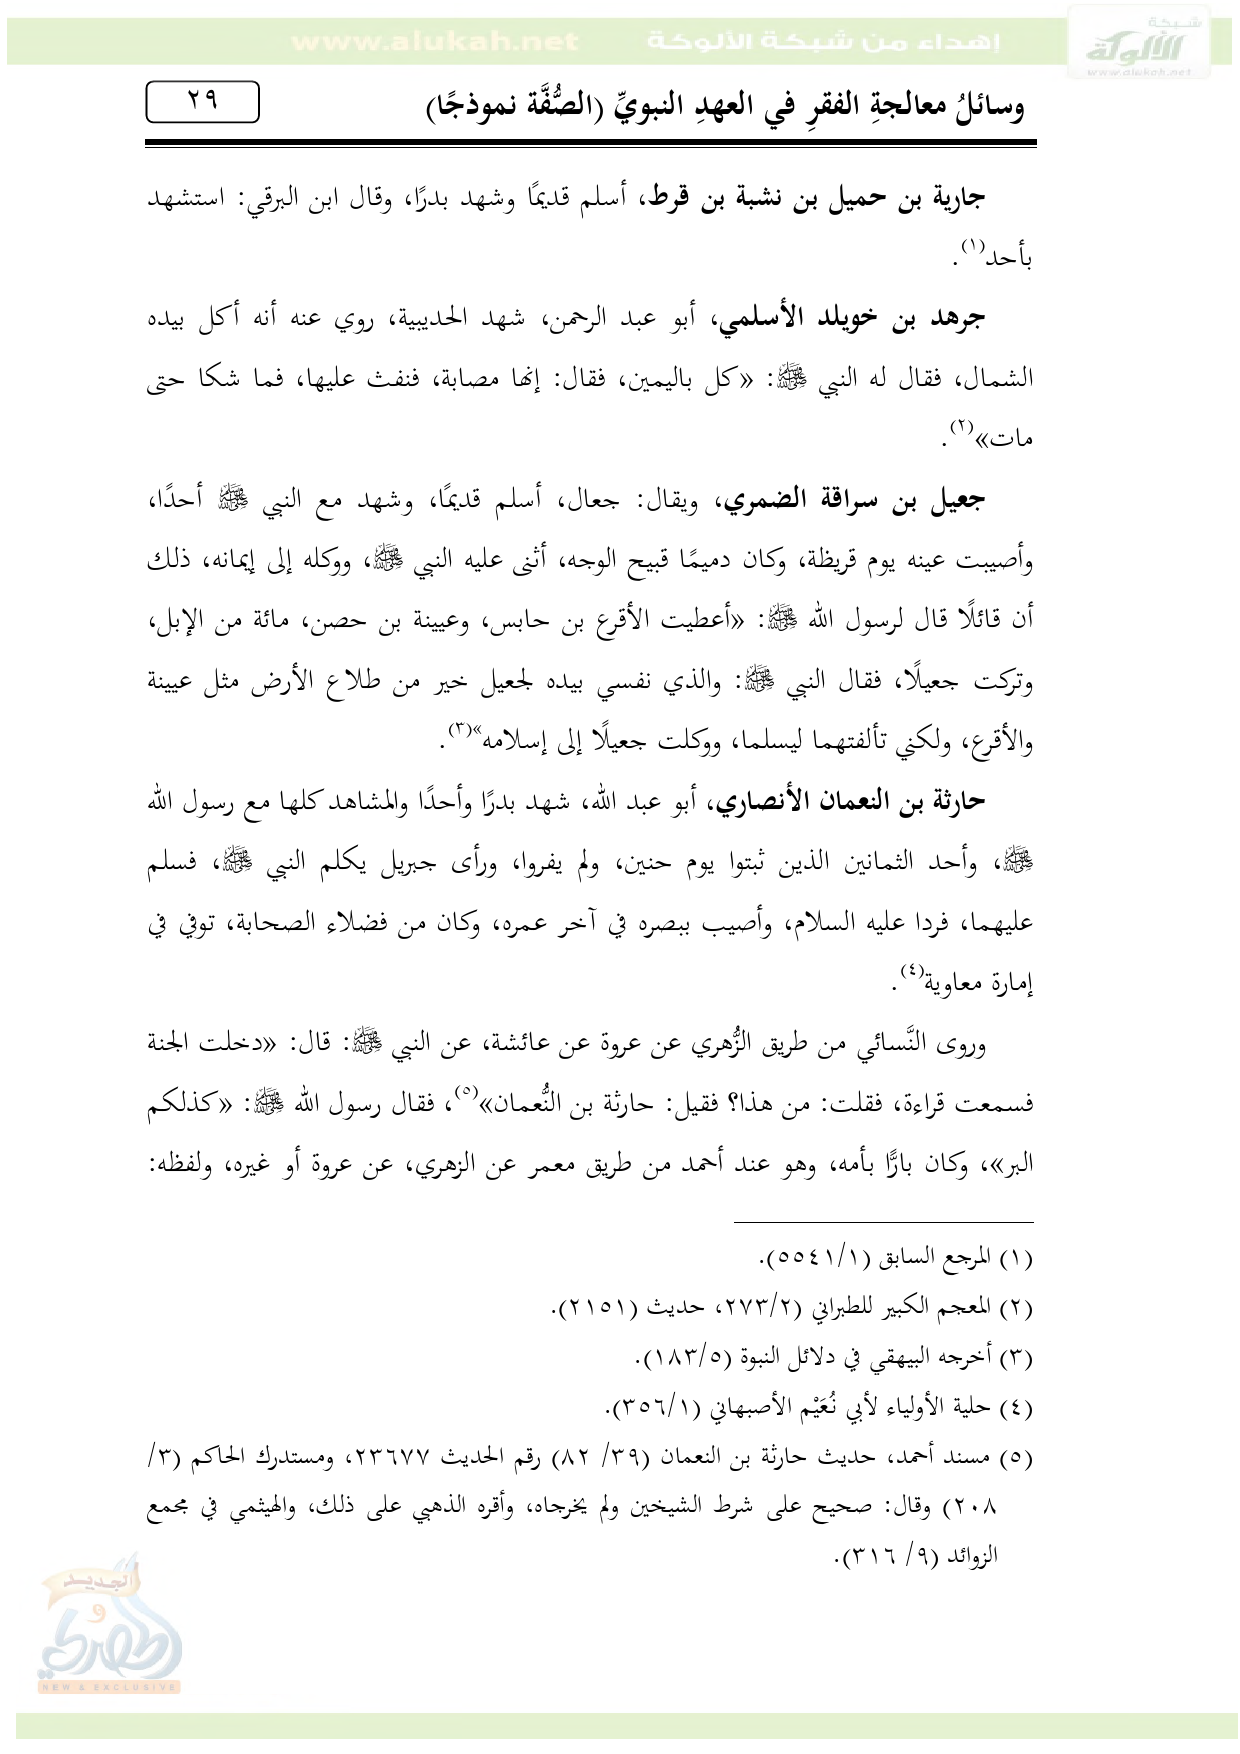 شبكة
الألوكة
www.alukah.net
إهداء من شبكة الألوكة www.alukah.net
وسائلُ معالجةِ الفقرِ في العهدِ النبويِّ (الصُّفَّة نموذجًا) ٢٩
جارية بن حميل بن نشبة بن قرط، أسلم قديمًا وشهد بدرًا، وقال ابن البرقي: استشهد
بأحد(١).
جرهد بن خويلد الأسلمي، أبو عبد الرحمن، شهد الحديبية، روي عنه أنه أكل بيده
الشمال، فقال له النبي ﷺ: «كل باليمين، فقال: إنها مصابة، فنفث عليها، فما شكا حتى
مات»(٢).
جعيل بن سراقة الضمري، ويقال: جعال، أسلم قديمًا، وشهد مع النبي ﷺ أحدًا،
وأصيبت عينه يوم قريظة، وكان دميمًا قبيح الوجه، أثنى عليه النبي ﷺ، ووكله إلى إيمانه، ذلك
أن قائلًا قال لرسول الله ﷺ: «أعطيت الأقرع بن حابس، وعيينة بن حصن، مائة من الإبل،
وتركت جعيلًا، فقال النبي ﷺ: والذي نفسي بيده لجعيل خير من طلاع الأرض مثل عيينة
والأقرع، ولكني تألفتهما ليسلما، ووكلت جعيلًا إلى إسلامه»(٣).
حارثة بن النعمان الأنصاري، أبو عبد الله، شهد بدرًا وأحدًا والمشاهد كلها مع رسول الله
ﷺ، وأحد الثمانين الذين ثبتوا يوم حنين، ولم يفروا، ورأى جبريل يكلم النبي ﷺ، فسلم
عليهما، فردا عليه السلام، وأصيب ببصره في آخر عمره، وكان من فضلاء الصحابة، توفي في
إمارة معاوية(٤).
وروى النَّسائي من طريق الزُّهري عن عروة عن عائشة، عن النبي ﷺ: قال: «دخلت الجنة
فسمعت قراءة، فقلت: من هذا؟ فقيل: حارثة بن النُّعمان»(٥)، فقال رسول الله ﷺ: «كذلكم
البر»، وكان بارًّا بأمه، وهو عند أحمد من طريق معمر عن الزهري، عن عروة أو غيره، ولفظه:
(١) المرجع السابق (٥٥٤١/١).
(٢) المعجم الكبير للطبراني (٢٧٣/٢، حديث (٢١٥١).
(٣) أخرجه البيهقي في دلائل النبوة (١٨٣/٥).
(٤) حلية الأولياء لأبي نُعَيْم الأصبهاني (٣٥٦/١).
(٥) مسند أحمد، حديث حارثة بن النعمان (٣٩/ ٨٢) رقم الحديث ٢٣٦٧٧، ومستدرك الحاكم (٣/
٢٠٨) وقال: صحيح على شرط الشيخين ولم يخرجاه، وأقره الذهبي على ذلك، والهيثمي في مجمع
الزوائد (٩/ ٣١٦).
الجديد
و
الحصري
NEW & EXCLUSIVE